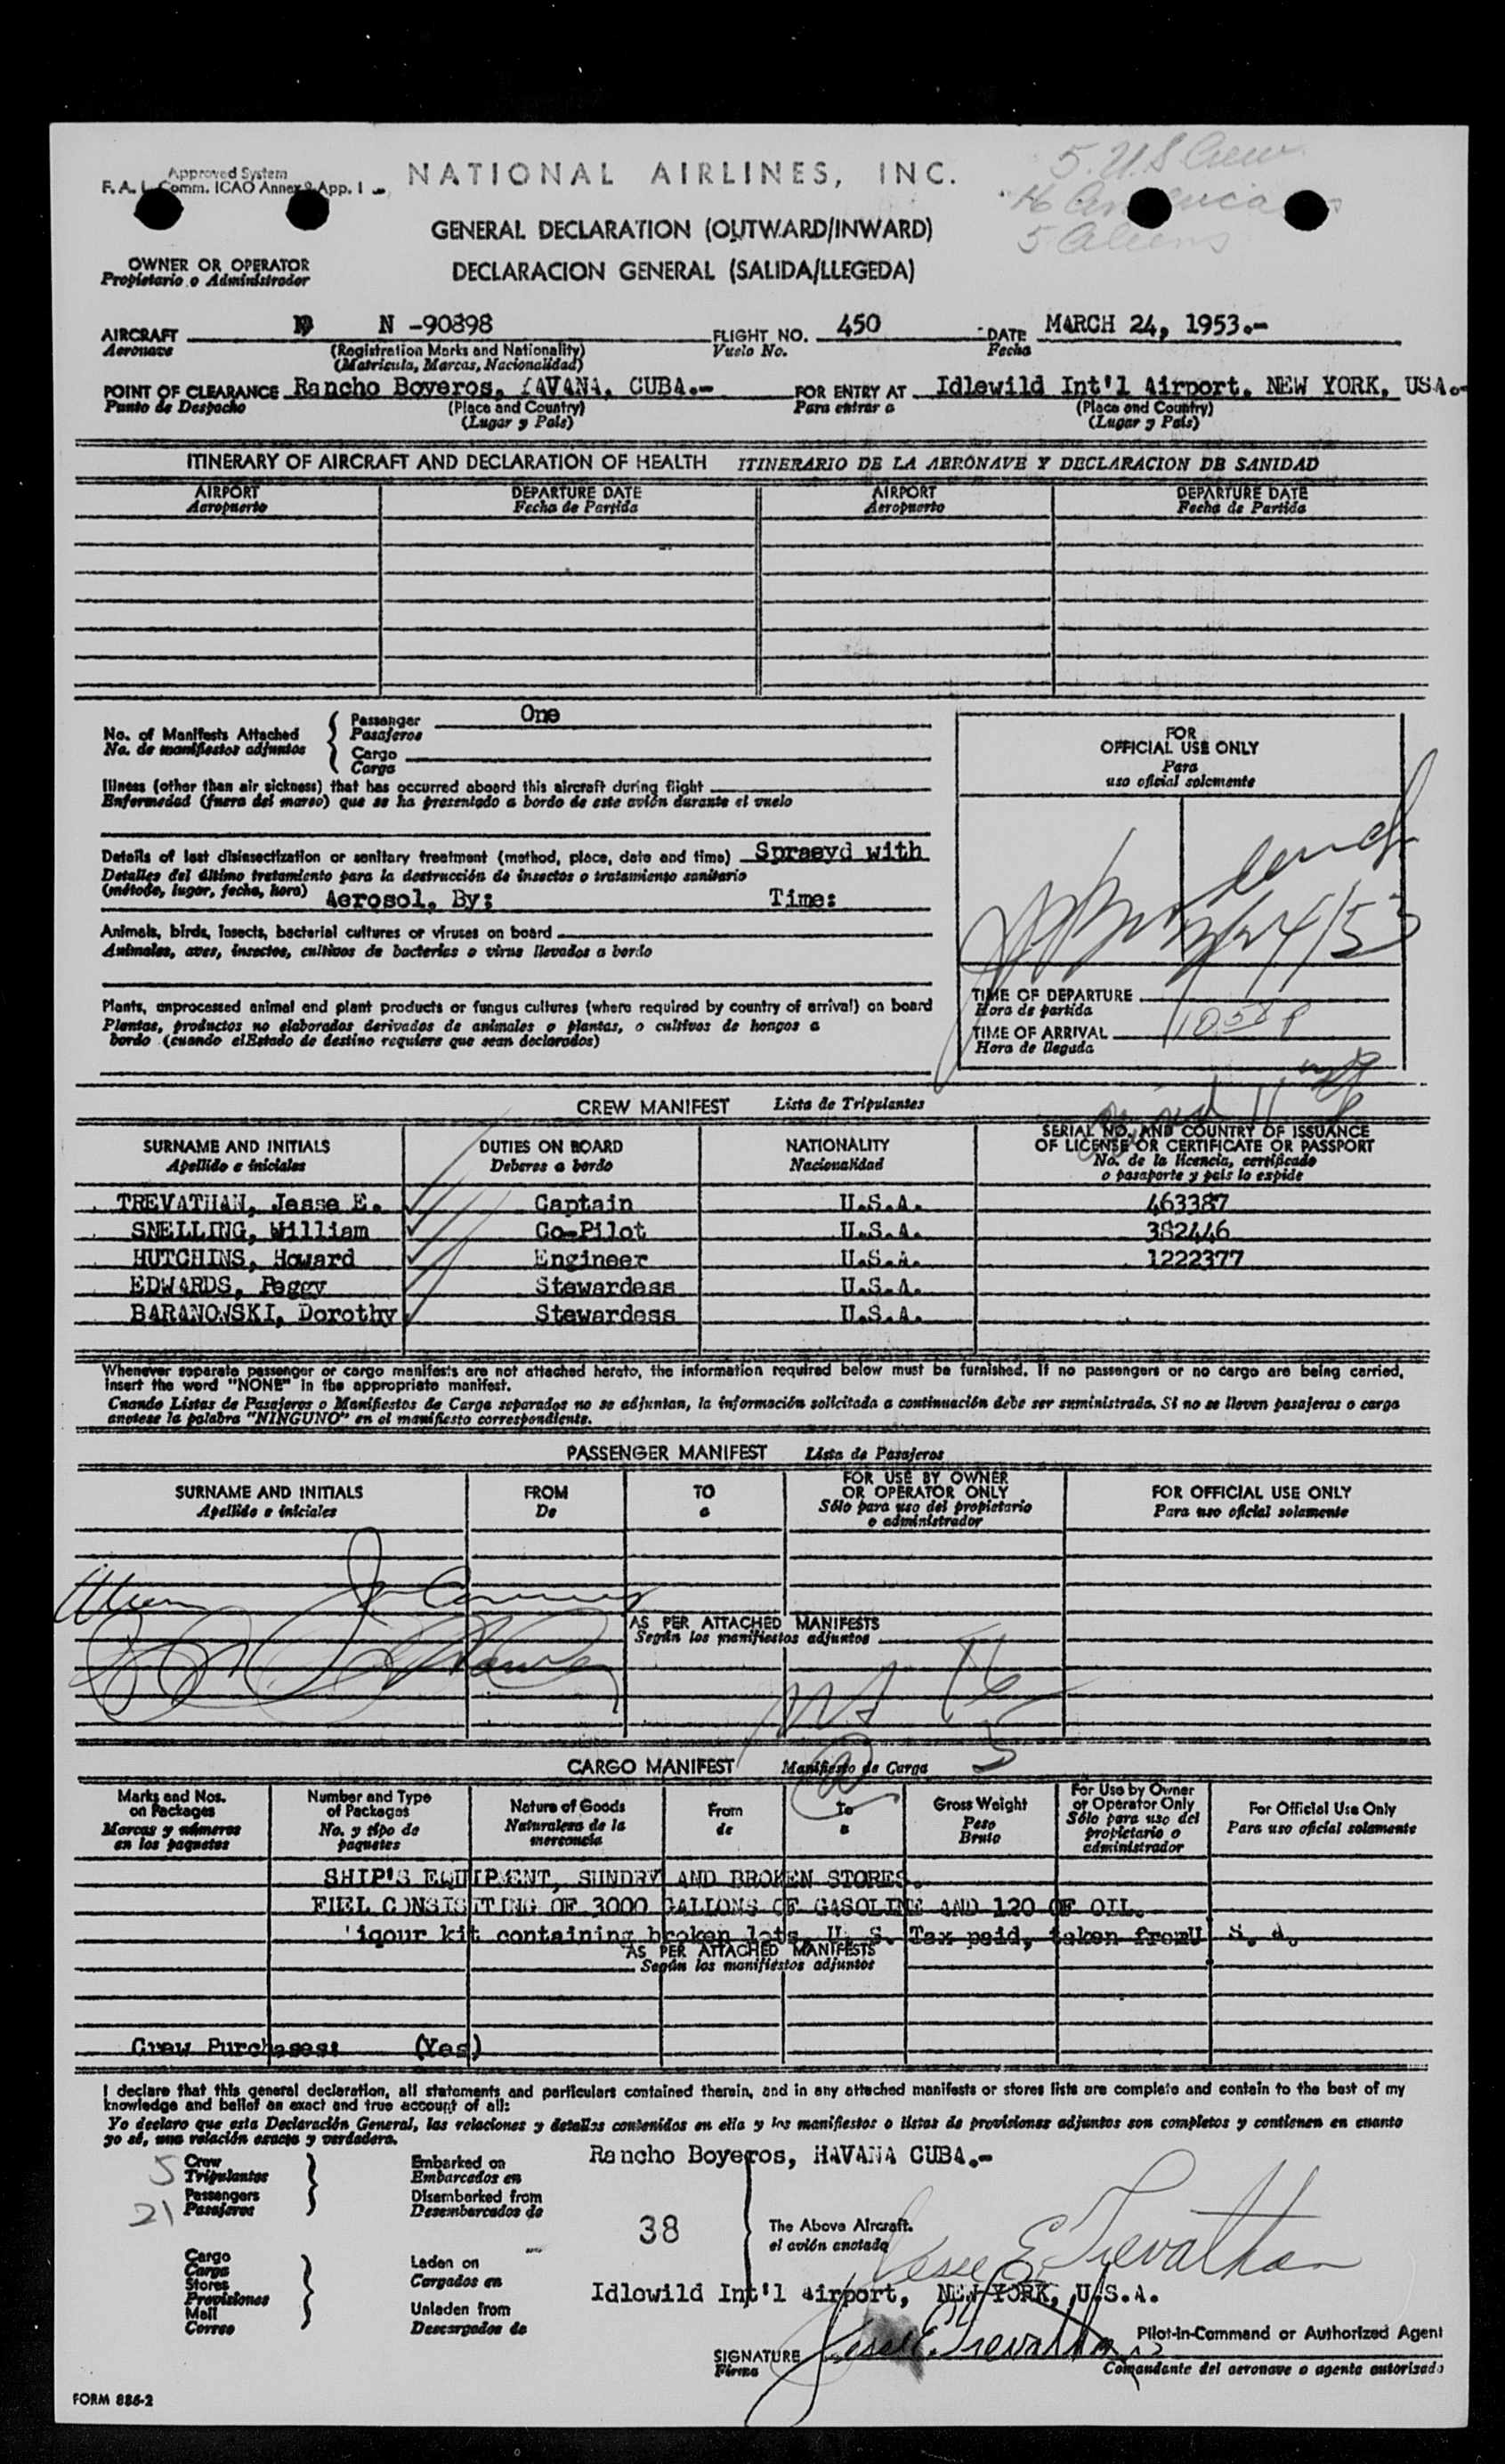 Approved System
F. A. L. Comm. ICAO Annex 9 App. 1
NATIONAL AIRLINES, INC.
5 U.S Crew
16 Americans
5 Aliens
GENERAL DECLARATION (OUTWARD/INWARD)
DECLARACION GENERAL (SALIDA/LLEGEDA)
OWNER OR OPERATOR
Propietario o Administrador
AIRCRAFT N -90898 FLIGHT NO. 450 DATE MARCH 24, 1953.-
Aeronave (Registration Marks and Nationality) Vuelo No. Fecha
(Matricula, Marcas, Nacionalidad)
POINT OF CLEARANCE Rancho Boyeros, HAVANA, CUBA.- FOR ENTRY AT Idlewild Int'l Airport, NEW YORK, USA.-
Punto de Despacho (Place and Country) Para entrar a (Place and Country)
(Lugar y País) (Lugar y País)
ITINERARY OF AIRCRAFT AND DECLARATION OF HEALTH ITINERARIO DE LA AERONAVE Y DECLARACION DE SANIDAD
AIRPORT DEPARTURE DATE AIRPORT DEPARTURE DATE
Aeropuerto Fecha de Partida Aeropuerto Fecha de Partida
No. of Manifests Attached
No. de manifiestos adjuntos
Passenger One
Pasajeros
Cargo
Carga
FOR
OFFICIAL USE ONLY
Para
uso oficial solamente
Illness (other than air sickness) that has occurred aboard this aircraft during flight
Enfermedad (fuera del mareo) que se ha presentado a bordo de este avión durante el vuelo
Details of last disinsectization or sanitary treatment (method, place, date and time) Spraeyd with
Detalles del último tratamiento para la destrucción de insectos o tratamiento sanitario
(método, lugar, fecha, hora) Aerosol. By: Time:
3/24/53
Animals, birds, insects, bacterial cultures or viruses on board
Animales, aves, insectos, cultivos de bacterias o virus llevados a bordo
Plants, unprocessed animal and plant products or fungus cultures (where required by country of arrival) on board
Plantas, productos no elaborados derivados de animales o plantas, o cultivos de hongos a
bordo (cuando elEstado de destino requiere que sean declarados)
TIME OF DEPARTURE
Hora de partida
TIME OF ARRIVAL 10 58 P
Hora de llegada
CREW MANIFEST Lista de Tripulantes
SURNAME AND INITIALS DUTIES ON BOARD NATIONALITY SERIAL NO. AND COUNTRY OF ISSUANCE
OF LICENSE OR CERTIFICATE OR PASSPORT
Apellido e iniciales Deberes a bordo Nacionalidad No. de la licencia, certificado
o pasaporte y país lo expide
TREVATHAN, Jesse E. Captain U.S.A. 463387
SNELLING, William Co-Pilot U.S.A. 382446
HUTCHINS, Howard Engineer U.S.A. 1222377
EDWARDS, Peggy Stewardess U.S.A.
BARANOWSKI, Dorothy Stewardess U.S.A.
Whenever separate passenger or cargo manifests are not attached hereto, the information required below must be furnished. If no passengers or no cargo are being carried,
insert the word "NONE" in the appropriate manifest.
Cuando Listas de Pasajeros o Manifiestos de Carga separados no se adjuntan, la información solicitada a continuación debe ser suministrada. Si no se lleven pasajeros o carga
anotese la palabra "NINGUNO" en el manifiesto correspondiente.
PASSENGER MANIFEST Lista de Pasajeros
SURNAME AND INITIALS FROM TO FOR USE BY OWNER
OR OPERATOR ONLY FOR OFFICIAL USE ONLY
Apellido e iniciales De a Sólo para uso del propietario
o administrador Para uso oficial solamente
AS PER ATTACHED MANIFESTS
Según los manifiestos adjuntos
CARGO MANIFEST Manifiesto de Carga
Marks and Nos.
on Packages
Marcas y números
en los paquetes
Number and Type
of Packages
No. y tipo de
paquetes
Nature of Goods
Naturaleza de la
mercancía
From
de
To
a
Gross Weight
Peso
Bruto
For Use by Owner
or Operator Only
Sólo para uso del
propietario o
administrador
For Official Use Only
Para uso oficial solamente
SHIP'S EQUIPMENT, SUNDRY AND BROKEN STORES.
FUEL CONSISTTING OF 3000 GALLONS OF GASOLINE AND 120 OF OIL.
'iqour kit containing broken lots, U. S. Tax paid, taken fromU S. A.
AS PER ATTACHED MANIFESTS
Según los manifiestos adjuntos
Crew Purchases: (Yes)
I declare that this general declaration, all statements and particulars contained therein, and in any attached manifests or stores lists are complete and contain to the best of my
knowledge and belief an exact and true account of all:
Yo declaro que esta Declaración General, las relaciones y detalles contenidos en ella y los manifiestos o listas de provisiones adjuntos son completos y contienen en cuanto
yo sé, una relación exacta y verdadera.
Rancho Boyeros, HAVANA CUBA.-
5 Crew
Tripulantes
21 Passengers
Pasajeros
Embarked on
Embarcados en
Disembarked from
Desembarcados de
38
The Above Aircraft.
el avión anotado
Jesse E Trevathan
Cargo
Carga
Stores
Provisiones
Mail
Correo
Laden on
Cargados en
Unladen from
Descargados de
Idlewild Int'l Airport, NEW YORK, U.S.A.
Pilot-in-Command or Authorized Agent
SIGNATURE Jesse E. Trevathan
Firma Comandante del aeronave o agente autorizado
FORM 886-2